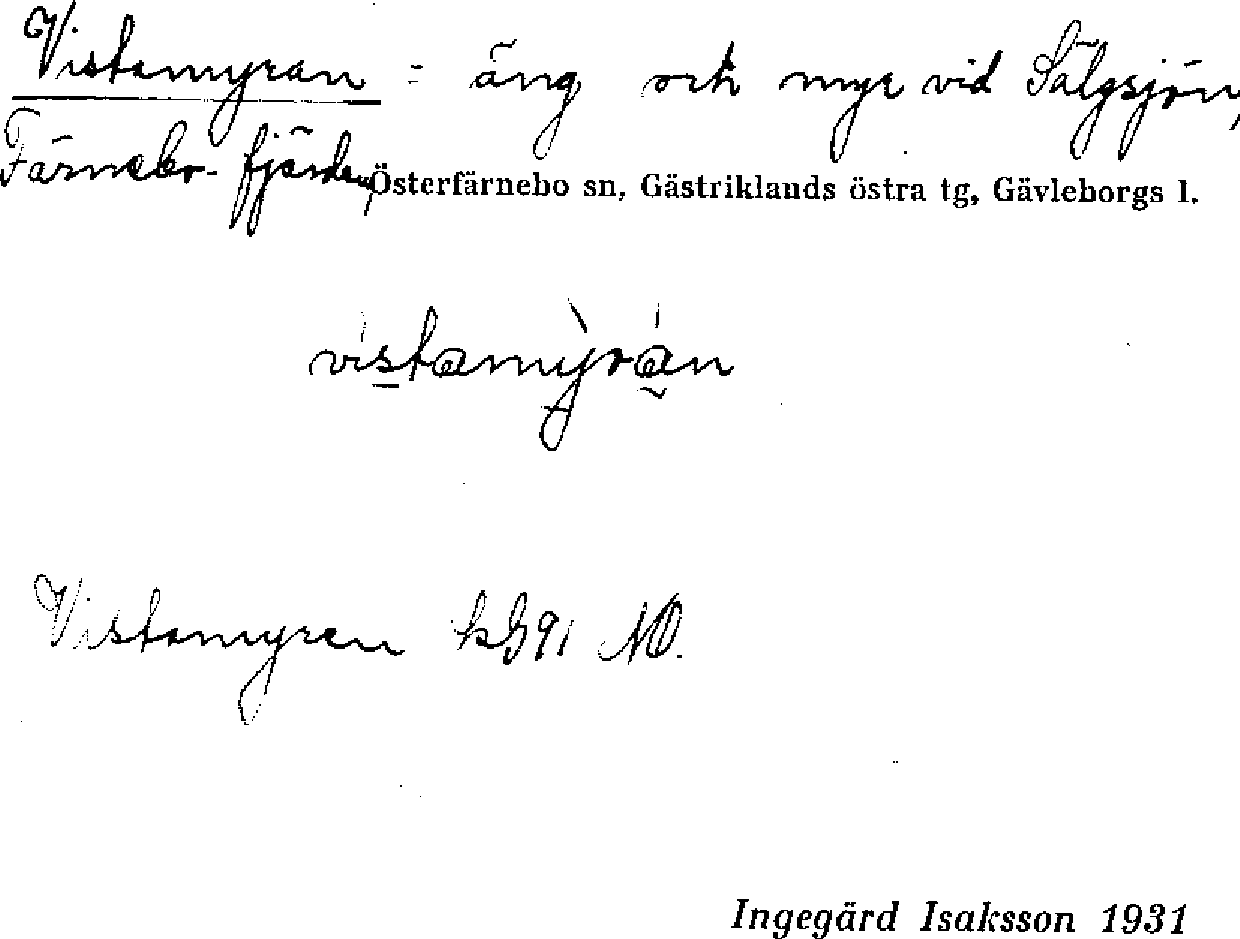 Vistamyran = äng och myr vid Sälgsjön,
Färnebo-fjärden,
Österfärnebo sn, Gästriklands östra tg, Gävleborgs l.
vistamỳrán
Vistamyran kG91 NO.
Ingegärd Isaksson 1931